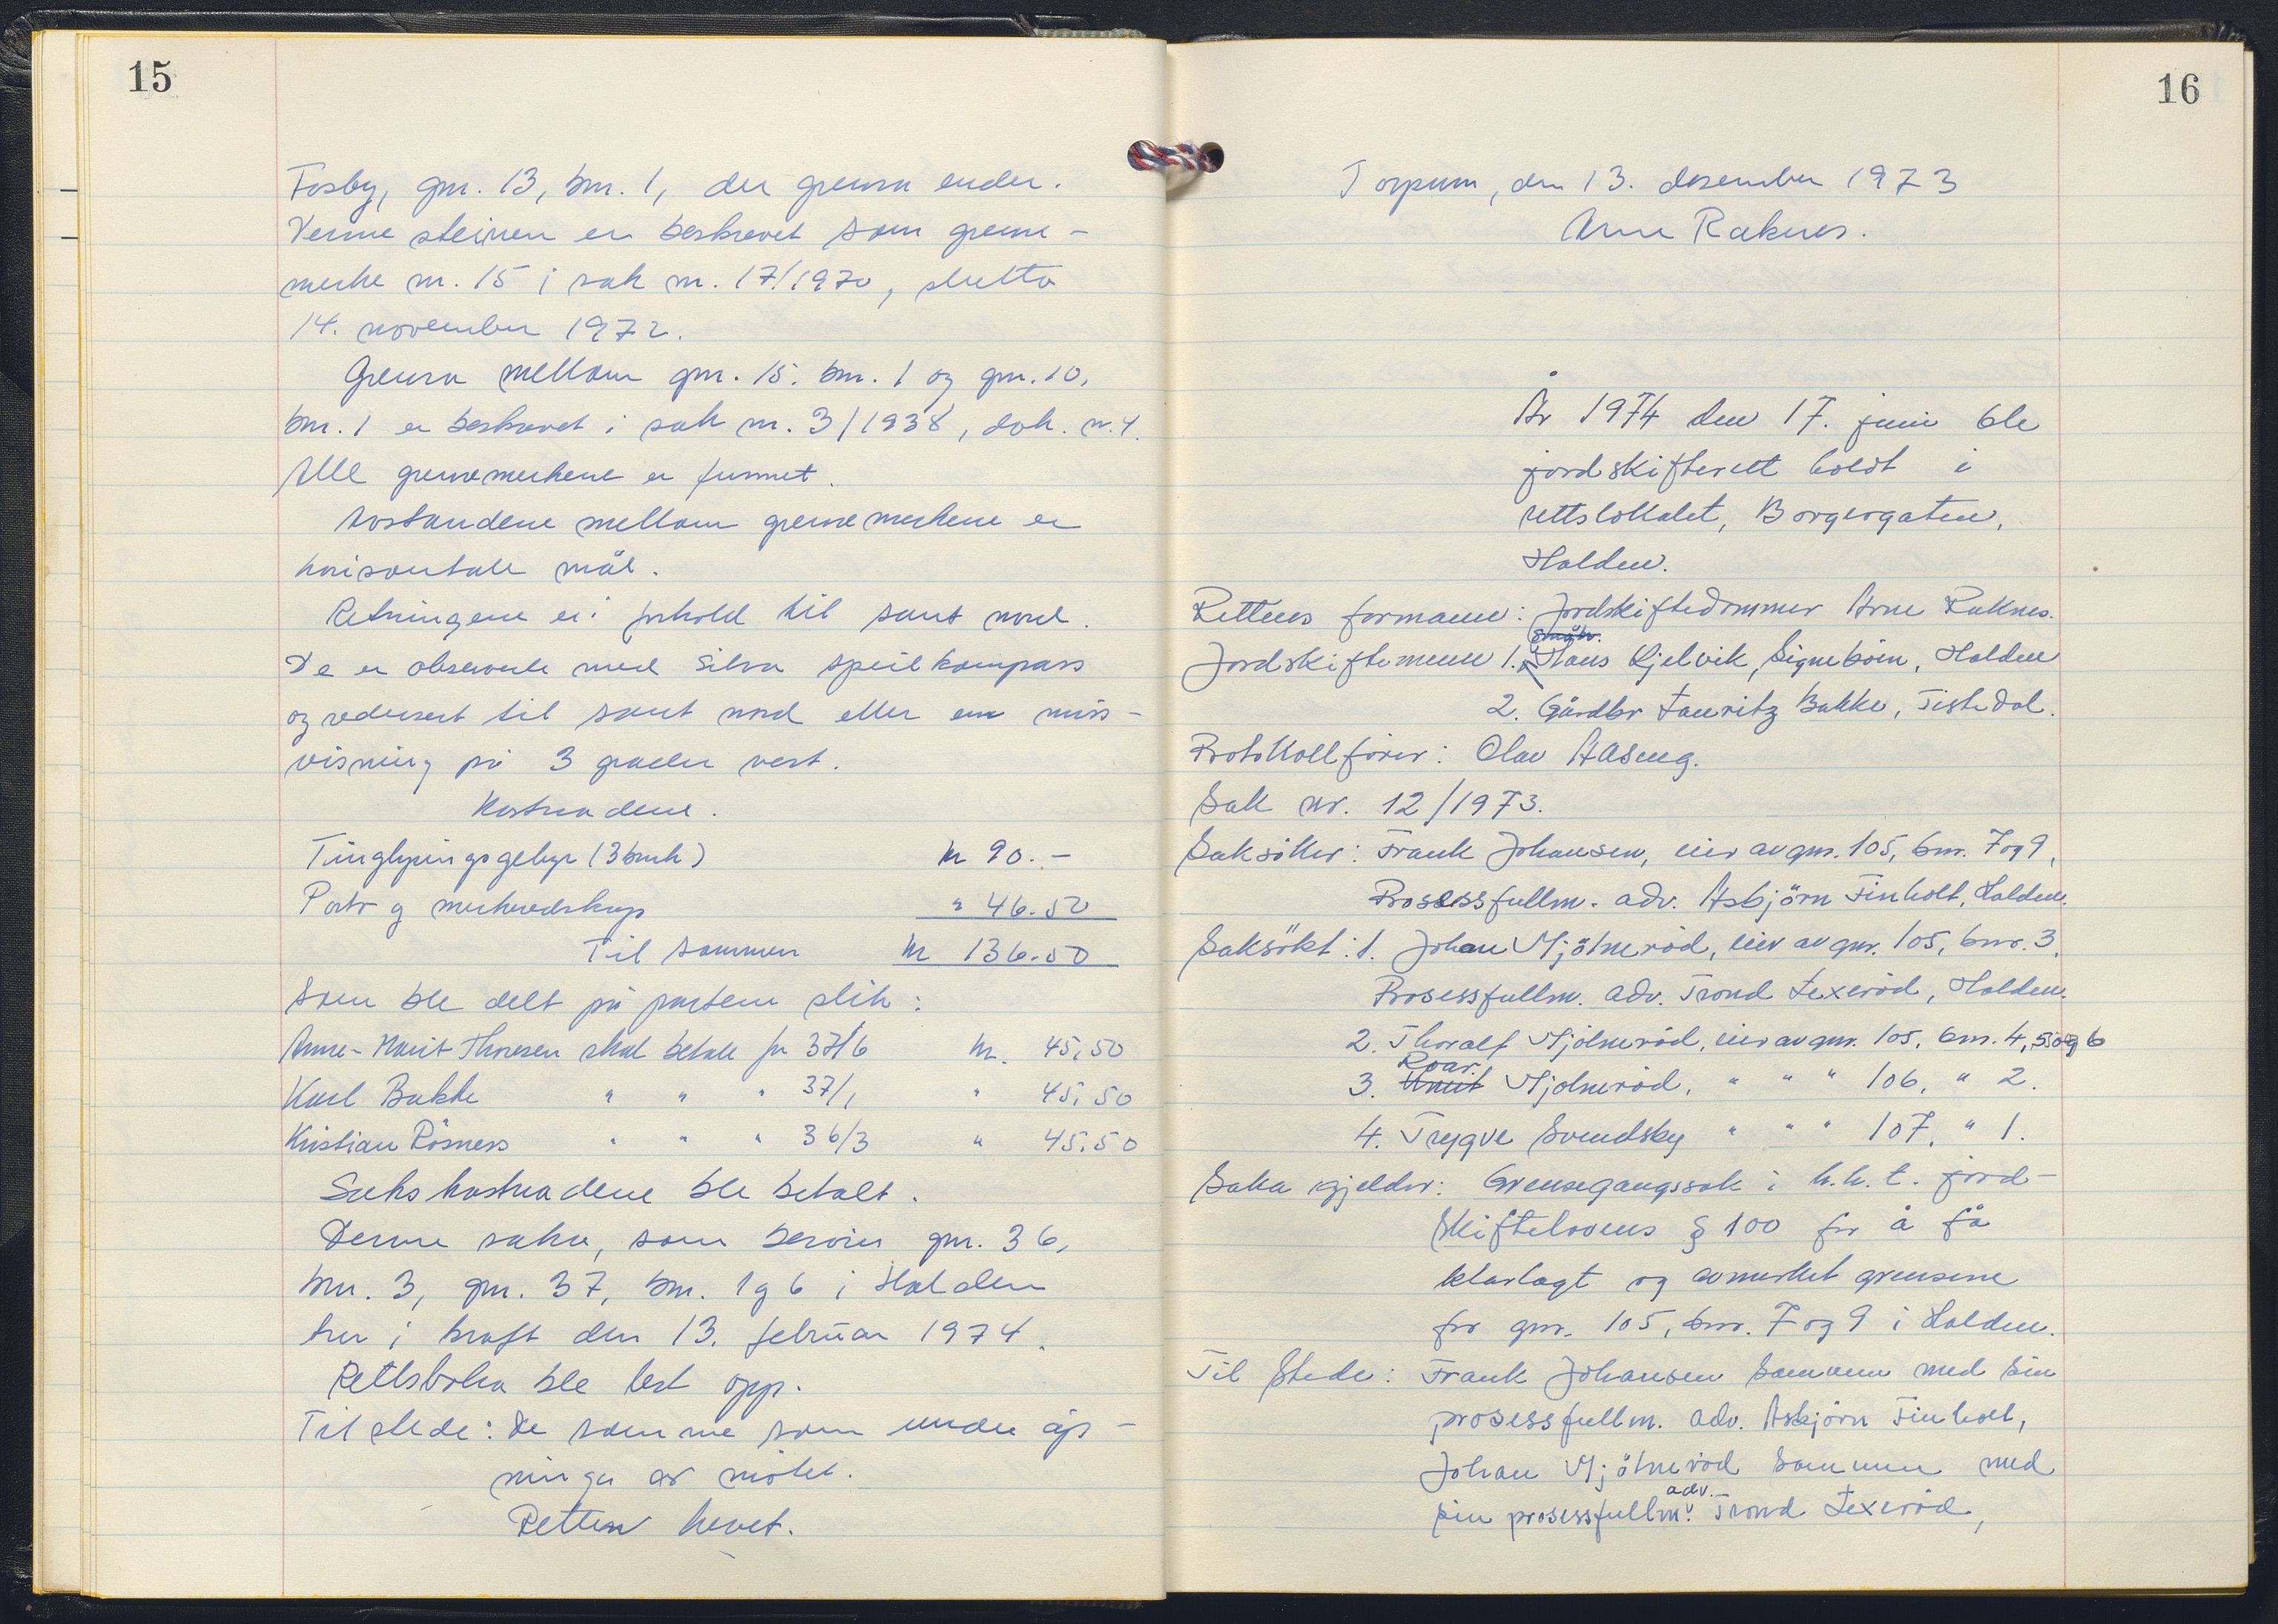 15
Fosby, gnr. 13, bnr. 1, der grensa ender.
Denne steinen er beskrevet som grense-
merke nr. 15 i sak nr. 17/1970, slutta
14. november 1972.
Grensa mellom gnr. 15. bnr. 1 og gnr. 10,
bnr. 1 er beskrevet i sak nr. 3/1938, dok. nr. 4.
Alle grensemerkene er funnet.
Avstandene mellom grensemerkene er
horisontale mål.
Retningene er i forhold til sant nord.
De er observerte med Silva speilkompass
og redusert til sant nord etter en mis-
visning på 3 grader vest.
Kostnadene.
Tinglysingsgebyr (3 bruk) kr 90.-
Porto og merkeredskap " 46.50
Til sammen kr 136.50
som ble delt på partene slik:
Anne-Marit Thoresen skal betale for 37/6 kr. 45,50
Karl Bakke " " " 37/1 " 45,50
Kristian Rösness " " " 36/3 " 45.50
Sakskostnadene ble betalt.
Denne saka, som berører gnr. 36,
bnr. 3, gnr. 37, bnr. 1 og 6 i Halden
trer i kraft den 13. februar 1974.
Rettsboka ble lest opp.
Til stede: De samme som under åp-
ninga av møtet.
Retten hevet.
16
Torpum, den 13. desember 1973
Arne Raknes.
År 1974 den 17. juni ble
jordskifterett holdt i
rettslokalet, Borgergaten,
Halden.
Rettens formann: Jordskiftedommer Arne Raknes.
småbr.
Jordskiftemenn 1. Hans Kjelvik, Signebøen, Halden
2. Gårdbr Lauritz Bakke, Tistedal.
Protokollfører: Olav Aaseng.
Sak nr. 12/1973.
Saksöker: Frank Johansen, eier av gnr. 105, bnr. 7 og 9,
Prosessfullm. adv. Asbjörn Finholt, Halden.
Saksökt: 1. Johan Mjölneröd, eier av gnr. 105, bnr. 3.
Prosessfullm. adv. Trond Lexeröd, Halden.
2. Thoralf Mjölneröd, eier av gnr. 105, bnr. 4, 5 og 6
Roar.
3. Knut Mjölneröd, " " " 106, " 2.
4. Trygve Svendsby " " " 107, " 1.
Saka gjelder: Grensegangssak i h.h.t. jord-
skiftelovens § 100 for å få
klarlagt og avmerket grensene
for gnr. 105, bnr. 7 og 9 i Halden.
Til Stede: Frank Johansen sammen med sin
prosessfullm. adv. Asbjörn Finholt,
Johan Mjölneröd sammen med
adv.
sin prosessfullm. Trond Lexeröd,